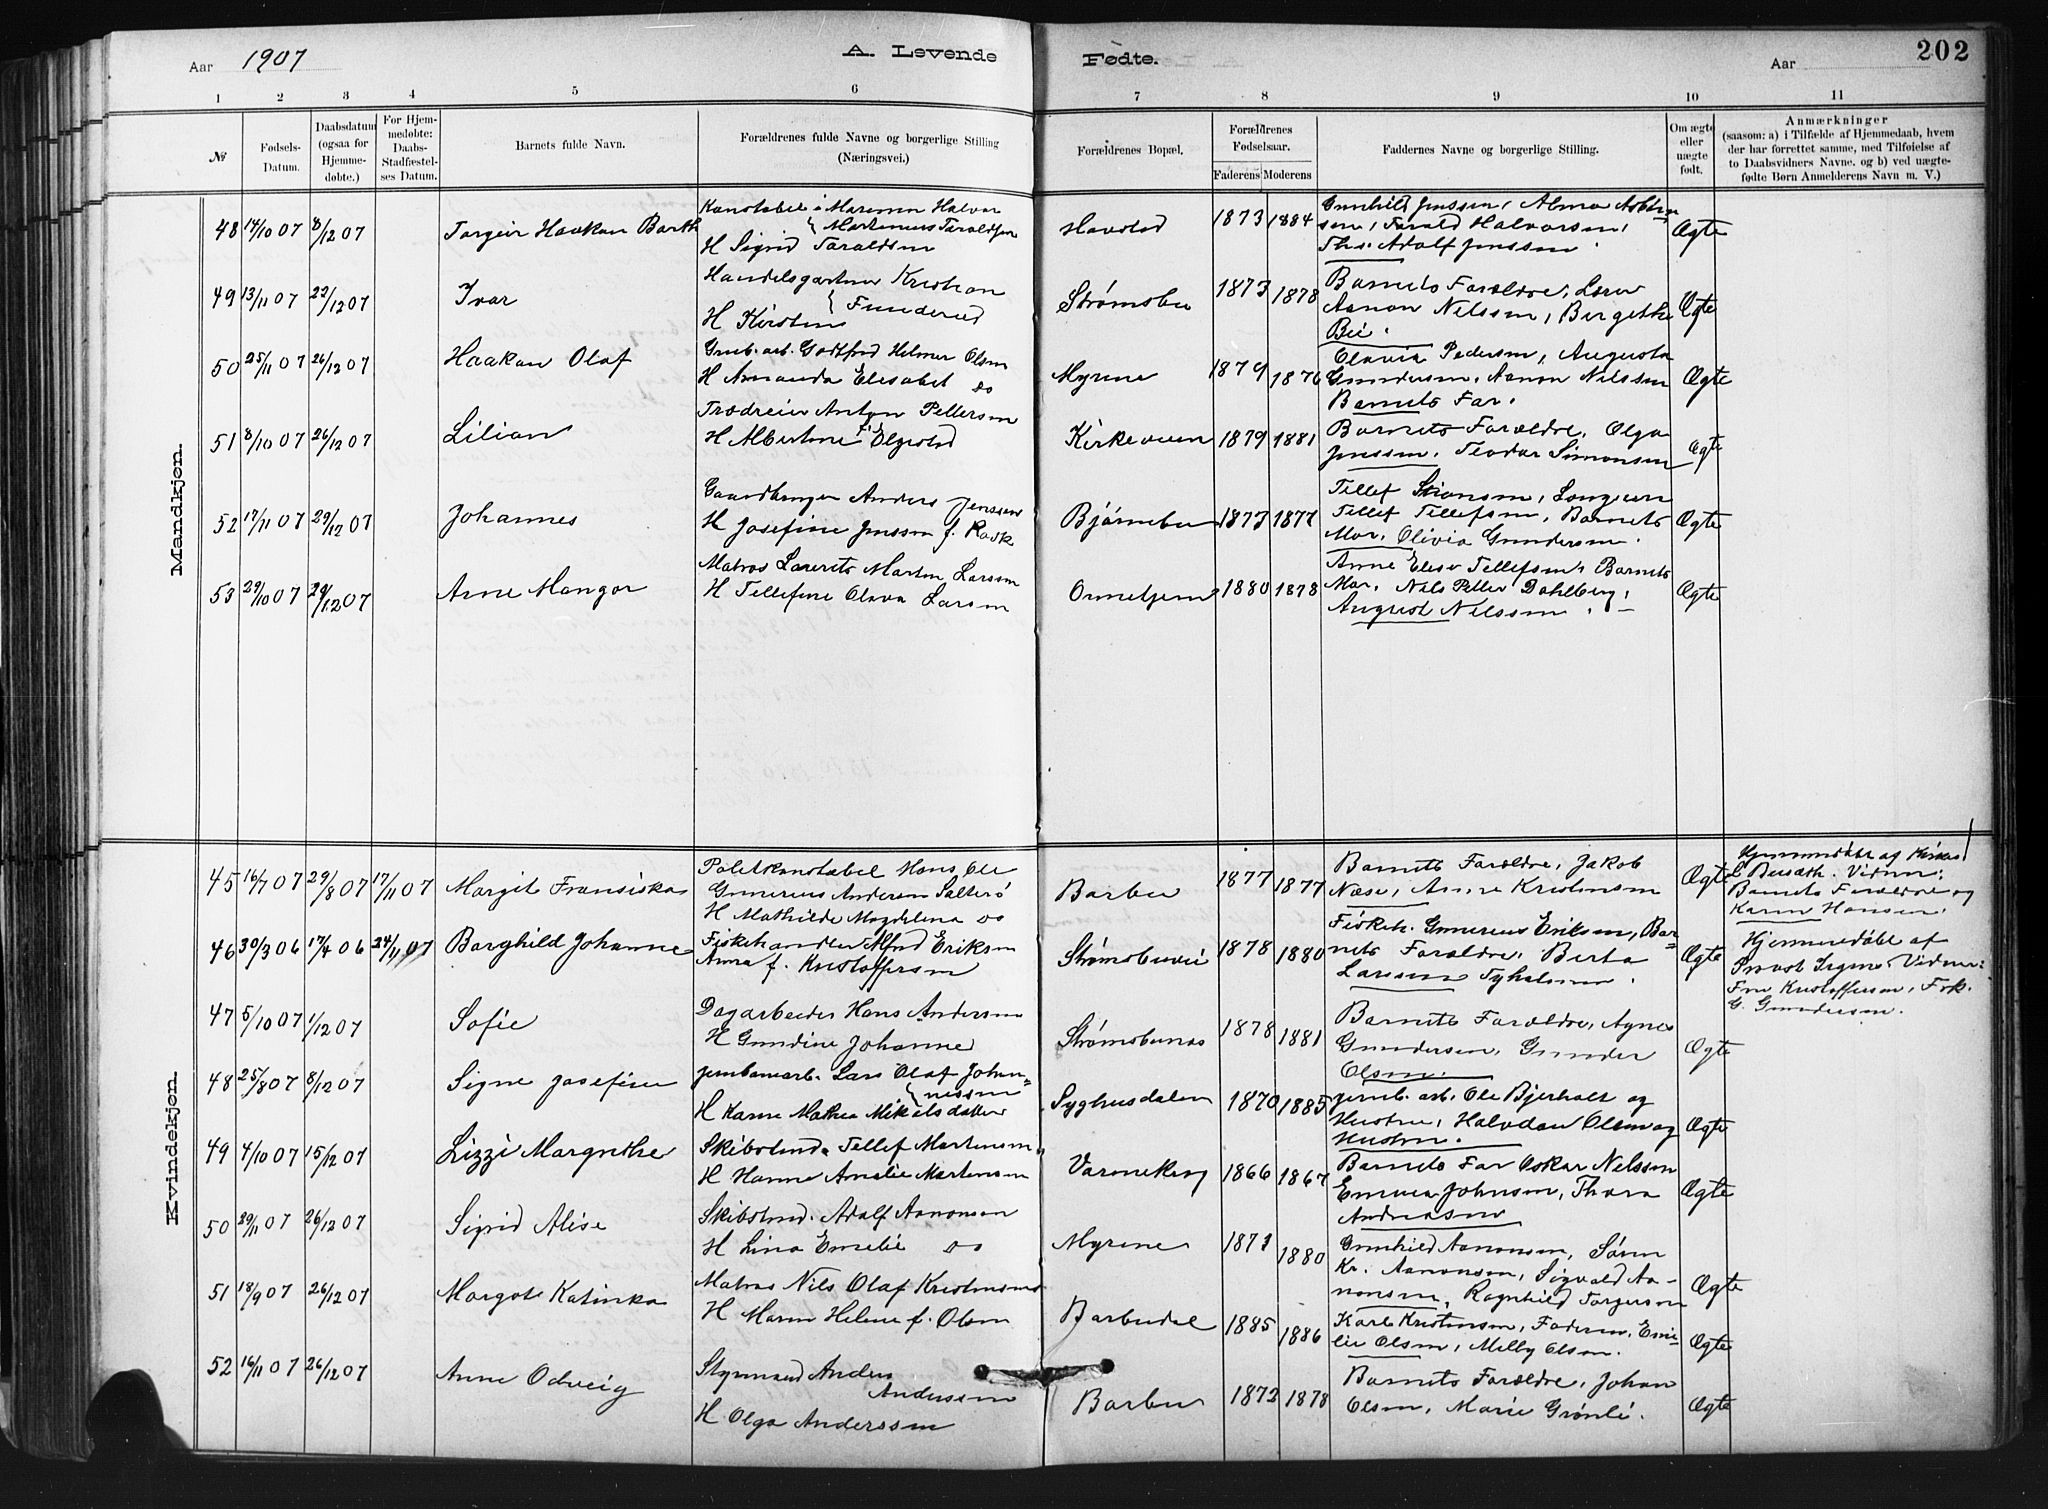 Aar 1907
A. Levende
Fødte.
Aar
202
1 2 3 4 5 6 7 8 9 10 11
№
Fødsels-
Datum.
Daabsdatum
(ogsaa for
Hjemme-
døbte.)
For Hjem-
medøbte:
Daabs-
Stadfæstel-
ses Datum.
Barnets fulde Navn.
Forældrenes fulde Navne og borgerlige Stilling
(Næringsvei.)
Forældrenes Bopæl.
Forældrenes
Fødselsaar.
Faderens Moderens
Faddernes Navne og borgerlige Stilling.
Om ægte
eller
uægte
født.
Anmærkninger
(saasom: a) i Tilfælde af Hjemmedaab, hvem
der har forrettet samme, med Tilføielse af
to Daabsvidners Navne. og b) ved uægte-
fødte Børn Anmelderens Navn m. V.)
Mandkjøn.
48 14/10 07 8/12 07
Torgeir Haakan Barth
Konstabel i Marinen Halvor
Martinius Taraldsen
H Sigrid Taraldsen
Havstad
1873 1884
Gunhild Jenssen, Alma Asbørn
sen, Tarald Halvorsen,
Ths. Adolf Jenssen.
Ægte
49 13/11 07 22/12 07
Ivar
Handelsgartner Kristian
H Kirsten
Strømsbu
1873 1878
Barnets Forældre,
Aanon Nilssen, Birgithe
Bie.
Ægte
50 25/11 07 26/12 07
Haakan Olaf
Grub. arb. Godtfred Helmer Olsen
H Amanda Elisabet do
Myrene
1879 1876
Olavia Pedersen, Augusta
Gundersen, Aanon Nilssen
Barnets Far.
Ægte
51 8/10 07 26/12 07
Lilian
Trædreier Anton Pettersen
H Albertine f. Elgestad
Kirkeveien
1879 1881
Barnets Forældre, Olga
Jenssen, Teodor Simonsen
Ægte
52 17/11 07 29/12 07
Johannes
Gaardbruger Anders Jenssen
H Josefine Jenssen f.
Bjørnebu
1873 1877
Tellef
Tellef Tellefsen, Barnets
Mor, Olivia Gundersen.
Ægte
53 29/10 07 29/12 07
Arne Mangor
Matros Laurits Martin Larsen
H Tellefine Olava Larsen
1880 1878
Anne Elise Tellefsen, Barnets
Mor, Nils Petter Dahlberg,
August Nilssen.
Ægte
Kvindekjøn.
45 16/7 07 29/8 07 17/11 07
Margit Fransiska
Politkonstabel Hans Ole
Gunerius Andersen Salterø
H Mathilde Magdalena do
Barbu
1877 1877
Barnets Forældre, Jakob
Næse, Anne Kristensen
Ægte
Hjemmedøbt af
Vidner:
Barnets Forældre og
Karen Hansen.
46 30/3 06 17/4 06 24/11 07
Borghild Johanne
Fiskehandler Alfred Eriksen
Anna f. Kristoffersen
Strømsbuvei
1878 1880
Fiskeh. Gunerius Eriksen, Bar-
nets Forældre, Berta
Larssen Tyholmen.
Ægte
Hjemmedøbt af
Provst Vidner:
Fru Kristoffersen, Frk.
G. Gundersen.
47 5/10 07 1/12 07
Sofie
Dagarbeider Hans Andersen
H Gundine Johanne
Strømsbunæs
1878 1881
Barnets Forældre, Agnes
Gundersen, Gunder
Olsen.
Ægte
48 25/8 07 8/12 07
Signe Josefine
Jernbanearb. Lars Olaf Johan-
nessen
H Karine Mathea Mikalsdatter
Syghusdalen
1870 1885
Jernb. arb. Ole Bjerholt og
Hustru, Halvdan Olsen og
Hustru.
Ægte
49 4/10 07 15/12 07
Lizzi Margrethe
Skibstmd. Tellef Martensen
H Hanne Amalie Martensen
Varnekrog
1866 1867
Barnets Far Oskar Nilssen
Emma Johnsen, Thora
Andreasen
Ægte
50 29/11 07 26/12 07
Sigrid Alise
Skibstmd. Adolf Aanonsen
H Lina Emelie do
Myrene
1871 1880
Gunhild Aanonsen, Søren
Kr. Aanonsen, Sigvald Aa-
nonsen, Ragnhild Torgersen
Ægte
51 18/9 07 26/12 07
Margot Katinka
Matros Nils Olaf Kristensen
H Maren Helene f. Olsen
Barbudal
1885 1886
Karl Kristensen, Faderen, Emi-
lie Olsen, Milly Olsen.
Ægte
52 16/11 07 26/12 07
Anne Odveig
Styrmand Anders
Anderssen
H Olga Anderssen
Barbu
1873 1878
Barnets Forældre, Johan
Olsen, Marie Grønli.
Ægte